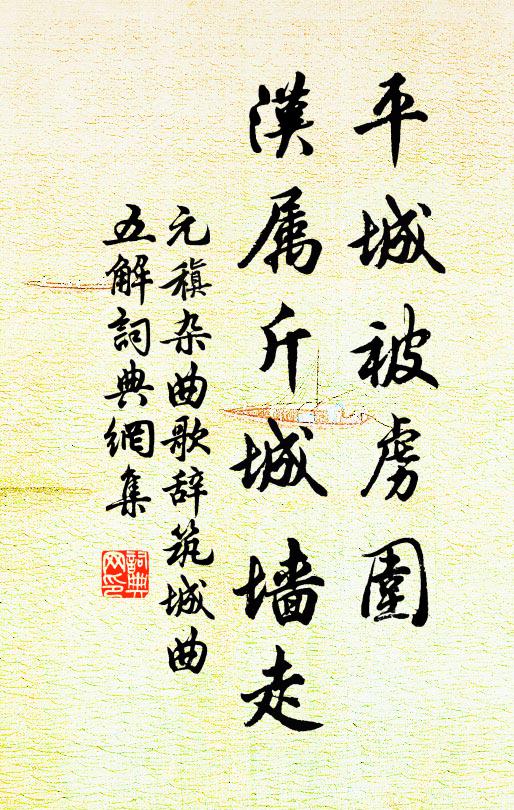 平城被虏围
漢属斤城墙走
元稹杂曲歌辞筑城曲
五解詞典網集
詞典网印